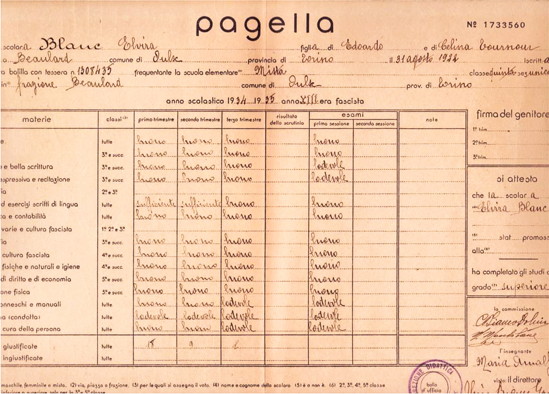 pagella
Nº 1733560
scolara Blanc Elvira figlia di Edoardo e di Celina Tournour
a Beaulard comune di Oulx provincia di Torino il 31 agosto 1924 Iscritta
a balilla con tessera n. 1308435 frequentante la scuola elementare Mista classe quinta sez. unica
frazione Beaulard comune di Oulx prov. di Torino
anno scolastico 1934 - 1935 anno XIII era fascista
materie classi primo trimestre secondo trimestre terzo trimestre risultato dello scrutinio esami prima sessione seconda sessione note firma del genitore
tutte buono buono buono buono
3ª e succ buono buono buono buono
e bella scrittura 3ª e succ. buono buono buono lodevole
espressiva e recitazione 3ª e succ buono buono buono lodevole
2ª e 3ª
ed esercizi scritti di lingua tutte sufficiente sufficiente buono buono
e contabilità tutte buono buono buono buono
varie e cultura fascista 1ª 2ª e 3ª
buono buono buono buono
cultura fascista 4ª e succ buono buono buono buono
fisiche e naturali e igiene 4ª e succ buono buono buono buono
di diritto e di economia 5ª e succ buono buono buono buono
fisica buono buono buono buono
donneschi e manuali tutte buono buono lodevole lodevole
(condotta) tutte lodevole lodevole lodevole lodevole
cura della persona tutte buono buono lodevole lodevole
giustificate
ingiustificate
si attesta
che la scolara
Elvira Blanc
stat promoss
alla
ha completato gli studi d
grado superiore
la commissione
l'insegnante
Maria
vista il direttore
DIDATTICA
bollo
di ufficio